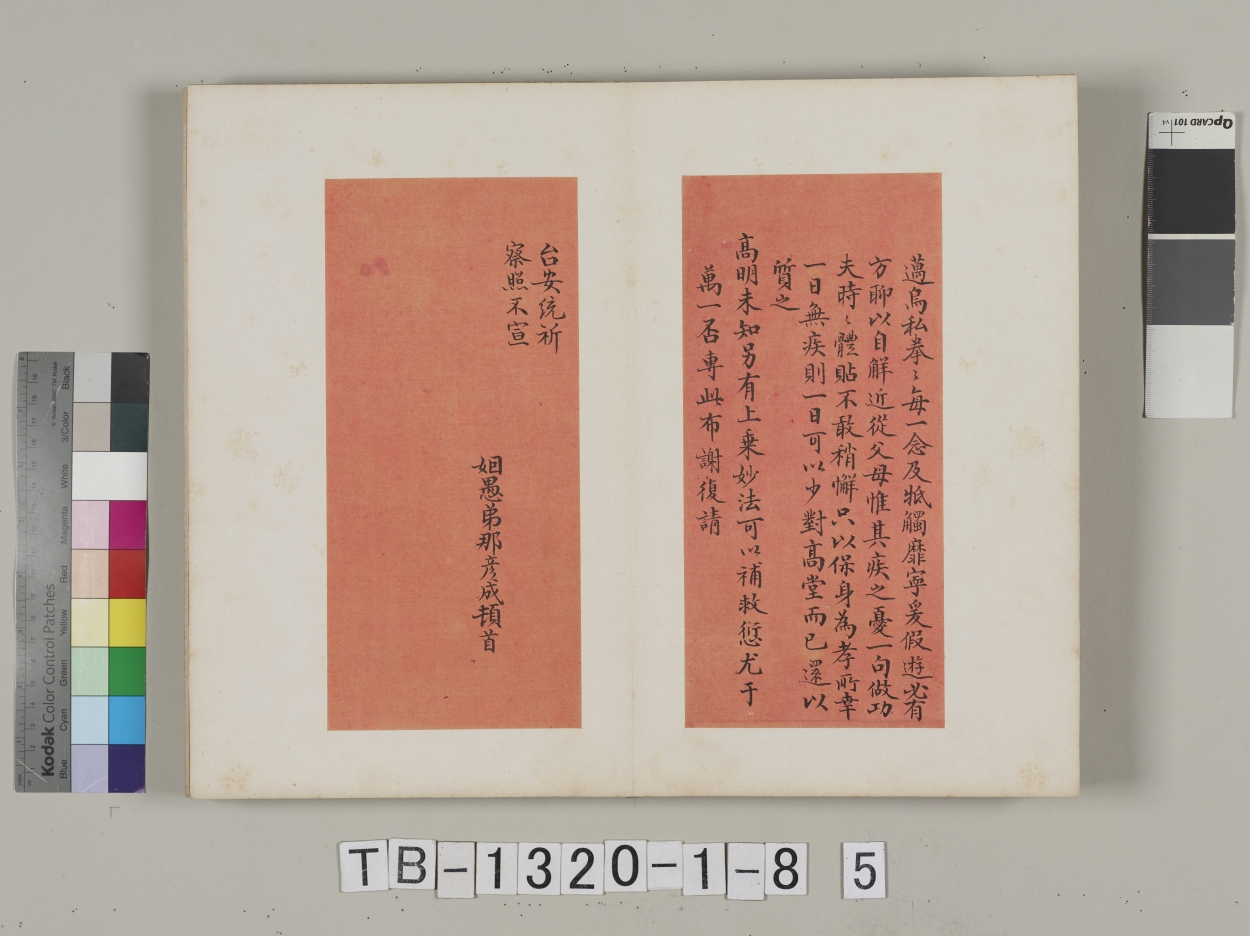 邁烏私拳〻每一念及牴觸靡寧爰假遊必有
方聊以自解近從父母惟其疾之憂一句做功
夫時〻體貼不敢稍懈只以保身為孝所幸
一日無疾則一日可以少對高堂而已還以
質之
高明未知另有上乘妙法可以補救愆尤于
萬一否專此布謝復請
台安統祈
察照不宣
姻愚弟那彦成頓首
TB-1320-1-8 5
QpCARD 101
Kodak Color Control Patches
Blue Cyan Green Yellow Red Magenta White 3/Color Black